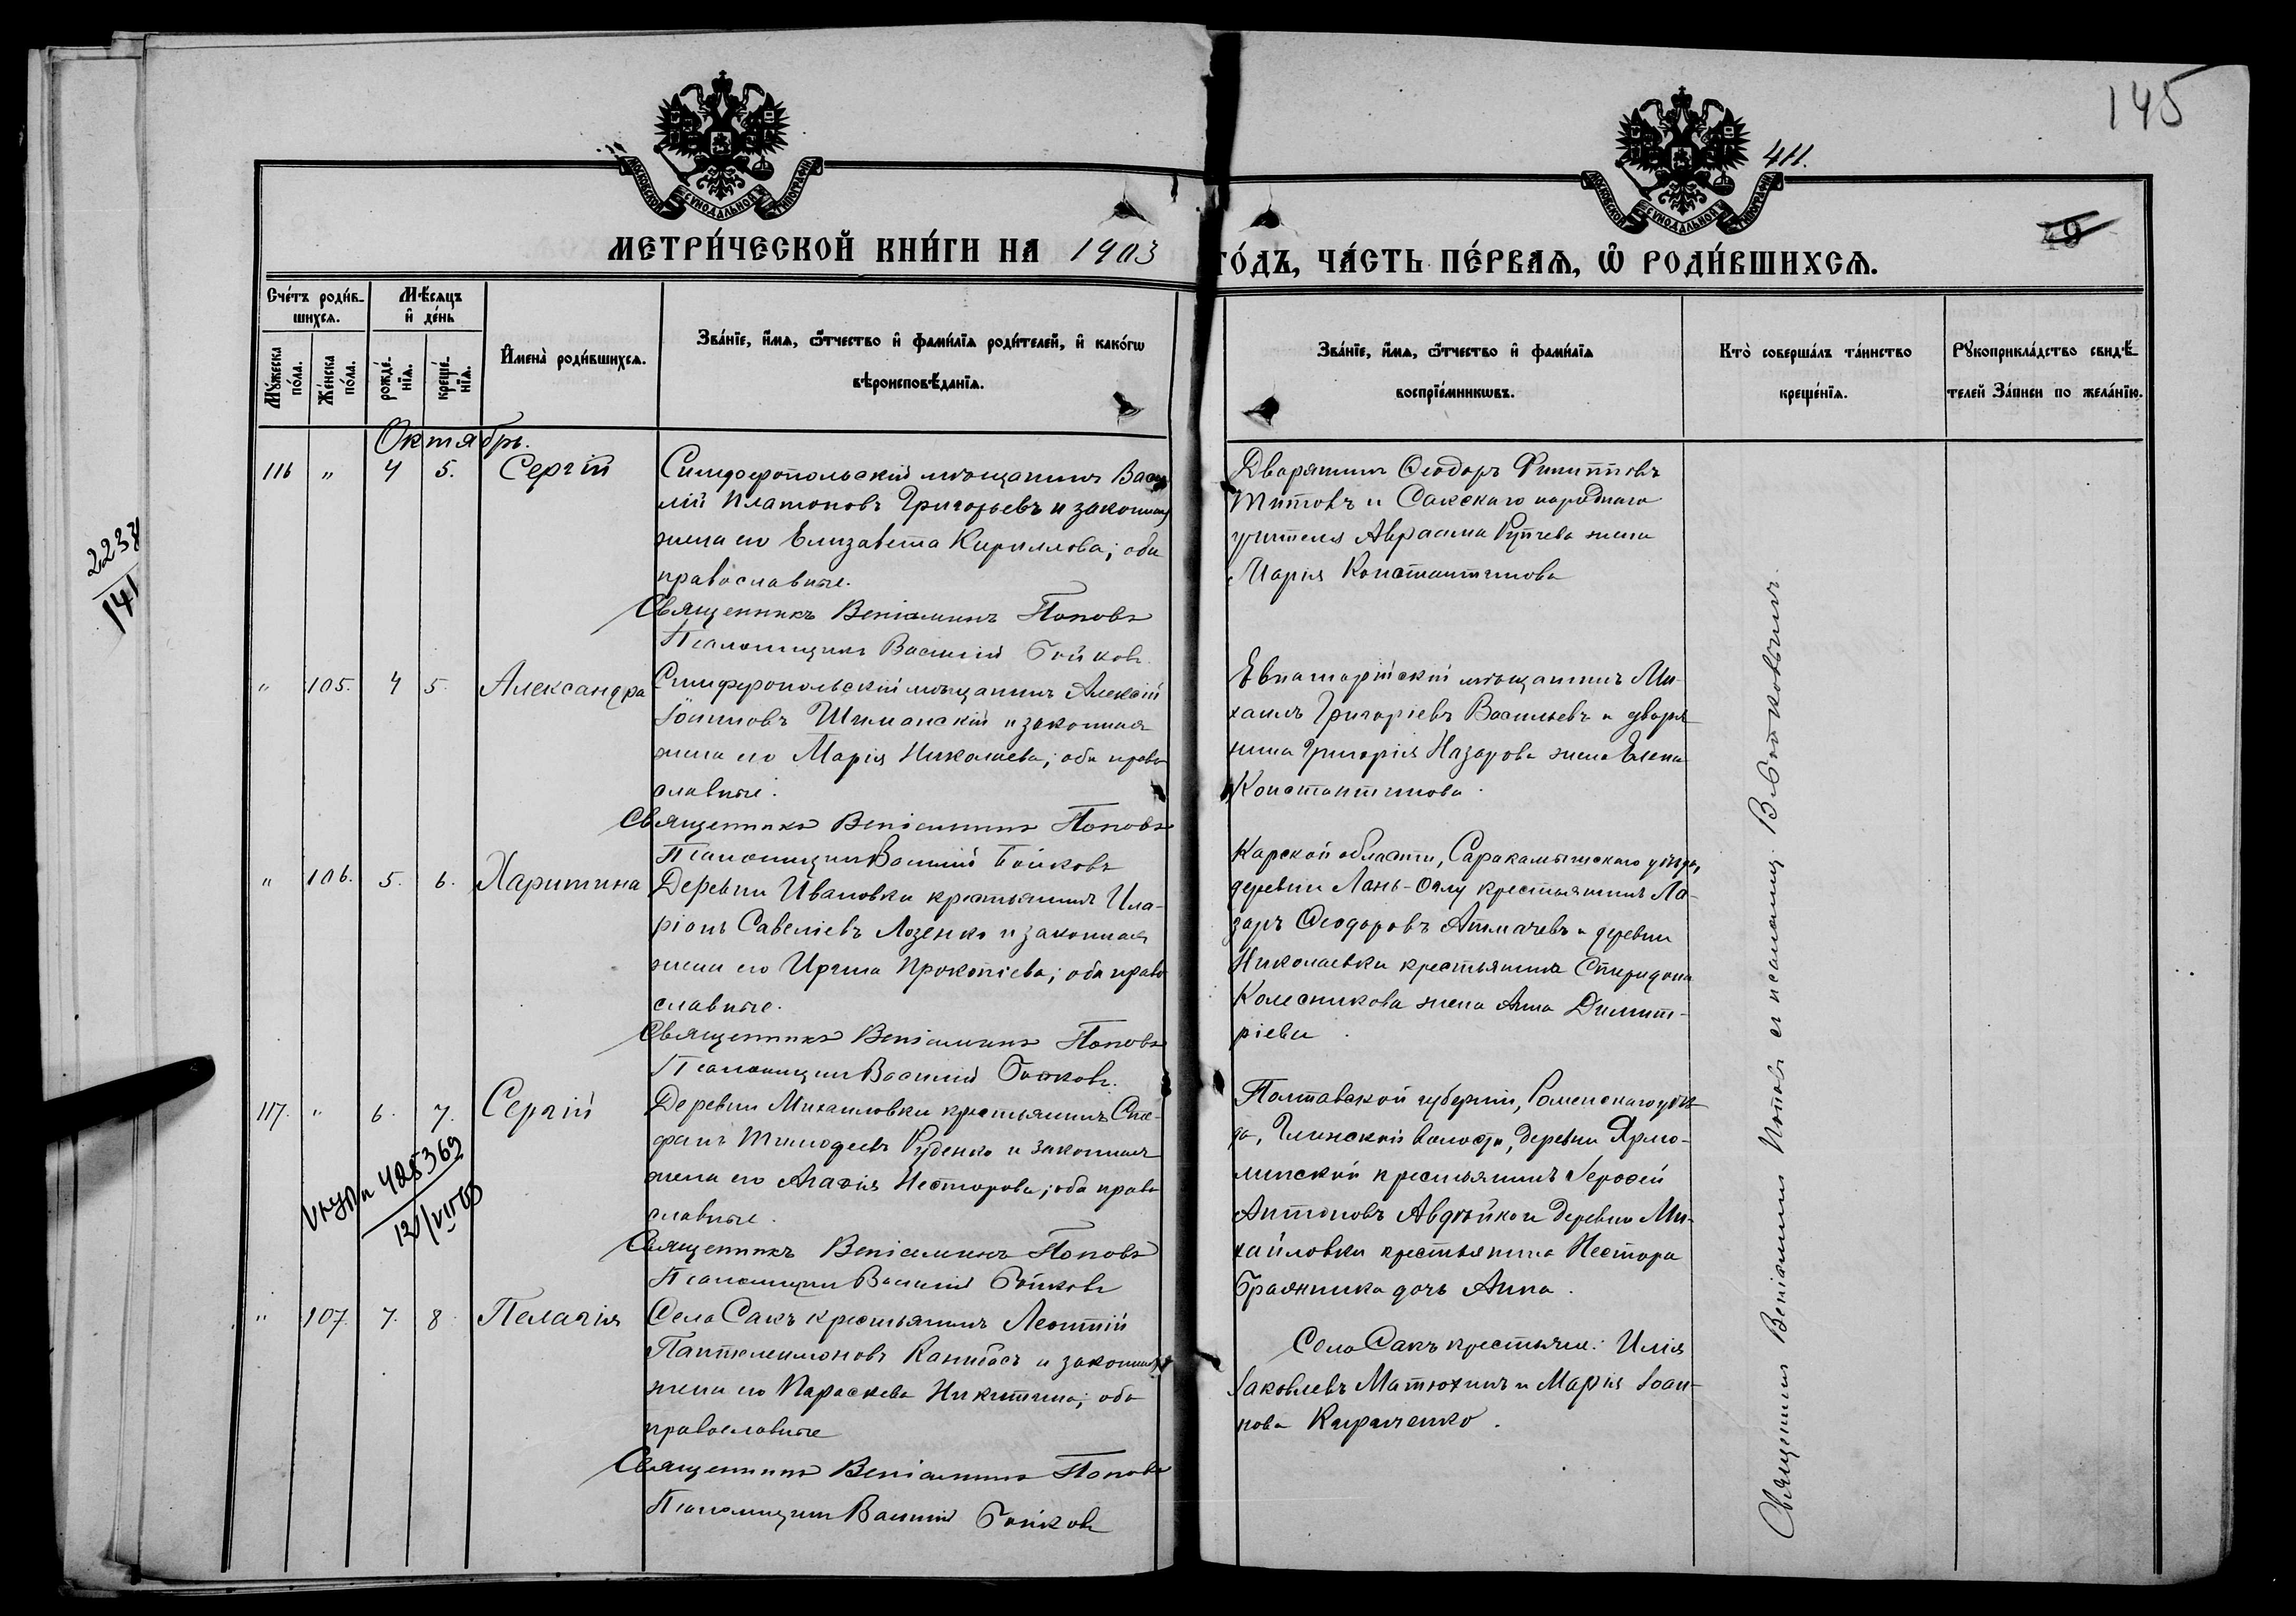 145
411.
49
МОСКОВСКОЙ СѴНОДАЛЬНОЙ ТИПОГРАФИИ
МОСКОВСКОЙ СѴНОДАЛЬНОЙ ТИПОГРАФИИ
МЕТРИ́ЧЕСКОЙ КНИ́ГИ НА 1903
ГО́ДЪ, ЧА́СТЬ ПЕ́РВАѦ, Ѽ РОДИ́ВШИХСѦ.
Счéтъ роди́в-
шихсѧ.
Мꙋ́жеска
по́ла.
Же́нска
по́ла.
Мѣ́сѧцъ
и҆ де́нь
рожде́-
нїѧ.
креще́-
нїѧ.
И҆менà роди́вшихсѧ.
Зва́нїе, и҆́мѧ, ѻ҆́тчество и҆ фами́лїѧ роди́телей, и҆ како́гѡ
вѣроисповѣ́данїѧ.
Зва́нїе, и҆́мѧ, ѻ҆́тчество и҆ фами́лїѧ
воспрїе́мникѡвъ.
Кто̀ соверша́лъ та́инство
креще́нїѧ.
Рꙋкоприкла́дство свидѣ́-
телей За́писи по жела́нїю.
Октябрь.
116 " 4 5. Сергій
Симферопольскій мѣщанинъ Васи-
лій Платоновъ Григорьевъ и законная
жена его Елизавета Кириллова; оба
православные.
Священникъ Веніаминъ Поповъ
Псаломщикъ Василій Бойковъ.
Дворянинъ Ѳеодоръ Филипповъ
Титовъ и Сакскаго народнаго
учителя Авраама жена
Марія Константинова
" 105. 4 5. Александра
Симферопольскій мѣщанинъ Алексій
Іоанновъ Шиманскій и законная
жена его Марія Николаева; оба право
славные.
Священникъ Веніаминъ Поповъ
Псаломщикъ Василій Бойковъ
Евпаторійскій мѣщанинъ Ми-
хаилъ Григоріевъ Васильевъ и дворя-
нина Григорія Назарова жена Елена
Константинова.
" 106. 5. 6. Харитина
Деревни Ивановки крестьянинъ Ила-
ріонъ Савеліевъ Лозенко и законная
жена его Ирина Прокопіева; оба право
славные.
Священникъ Веніаминъ Поповъ
Псаломщикъ Василій Бойковъ.
Карской области, Саракамышскаго уѣзда,
деревни крестьянинъ Ла-
заръ Ѳеодоровъ Атмачевъ и деревни
Николаевки крестьянина Спиридона
Колесникова жена Анна Димит-
ріева.
117. " 6. 7. Сергій
Деревни Михайловки крестьянинъ Сте-
фанъ Тимоѳеевъ Руденко и законная
жена его Агаѳія Несторова; оба право
славные.
Священникъ Веніаминъ Поповъ
Псаломщикъ Василій Бойковъ
Полтавской губерніи, Роменскаго уѣз-
да, Глинской волости, деревни Ярмо-
линской крестьянинъ Іероѳей
Антоновъ Авдѣйко и деревни Ми-
хайловки крестьянина Нестора
Бражника дочь Анна.
428369
" 107. 7. 8. Пелагія
Села Сакъ крестьянинъ Леонтій
Пантелеимоновъ Канибасъ и законная
жена его Параскева Никитина; оба
православные
Священникъ Веніаминъ Поповъ
Псаломщикъ Василій Бойковъ
Села Сакъ крестьяне: Илія
Іаковлевъ Матюхинъ и Марія Іоан-
нова Кириченко.
Священникъ Веніаминъ Поповъ съ псаломщ. В. Бойковымъ.
2238
141